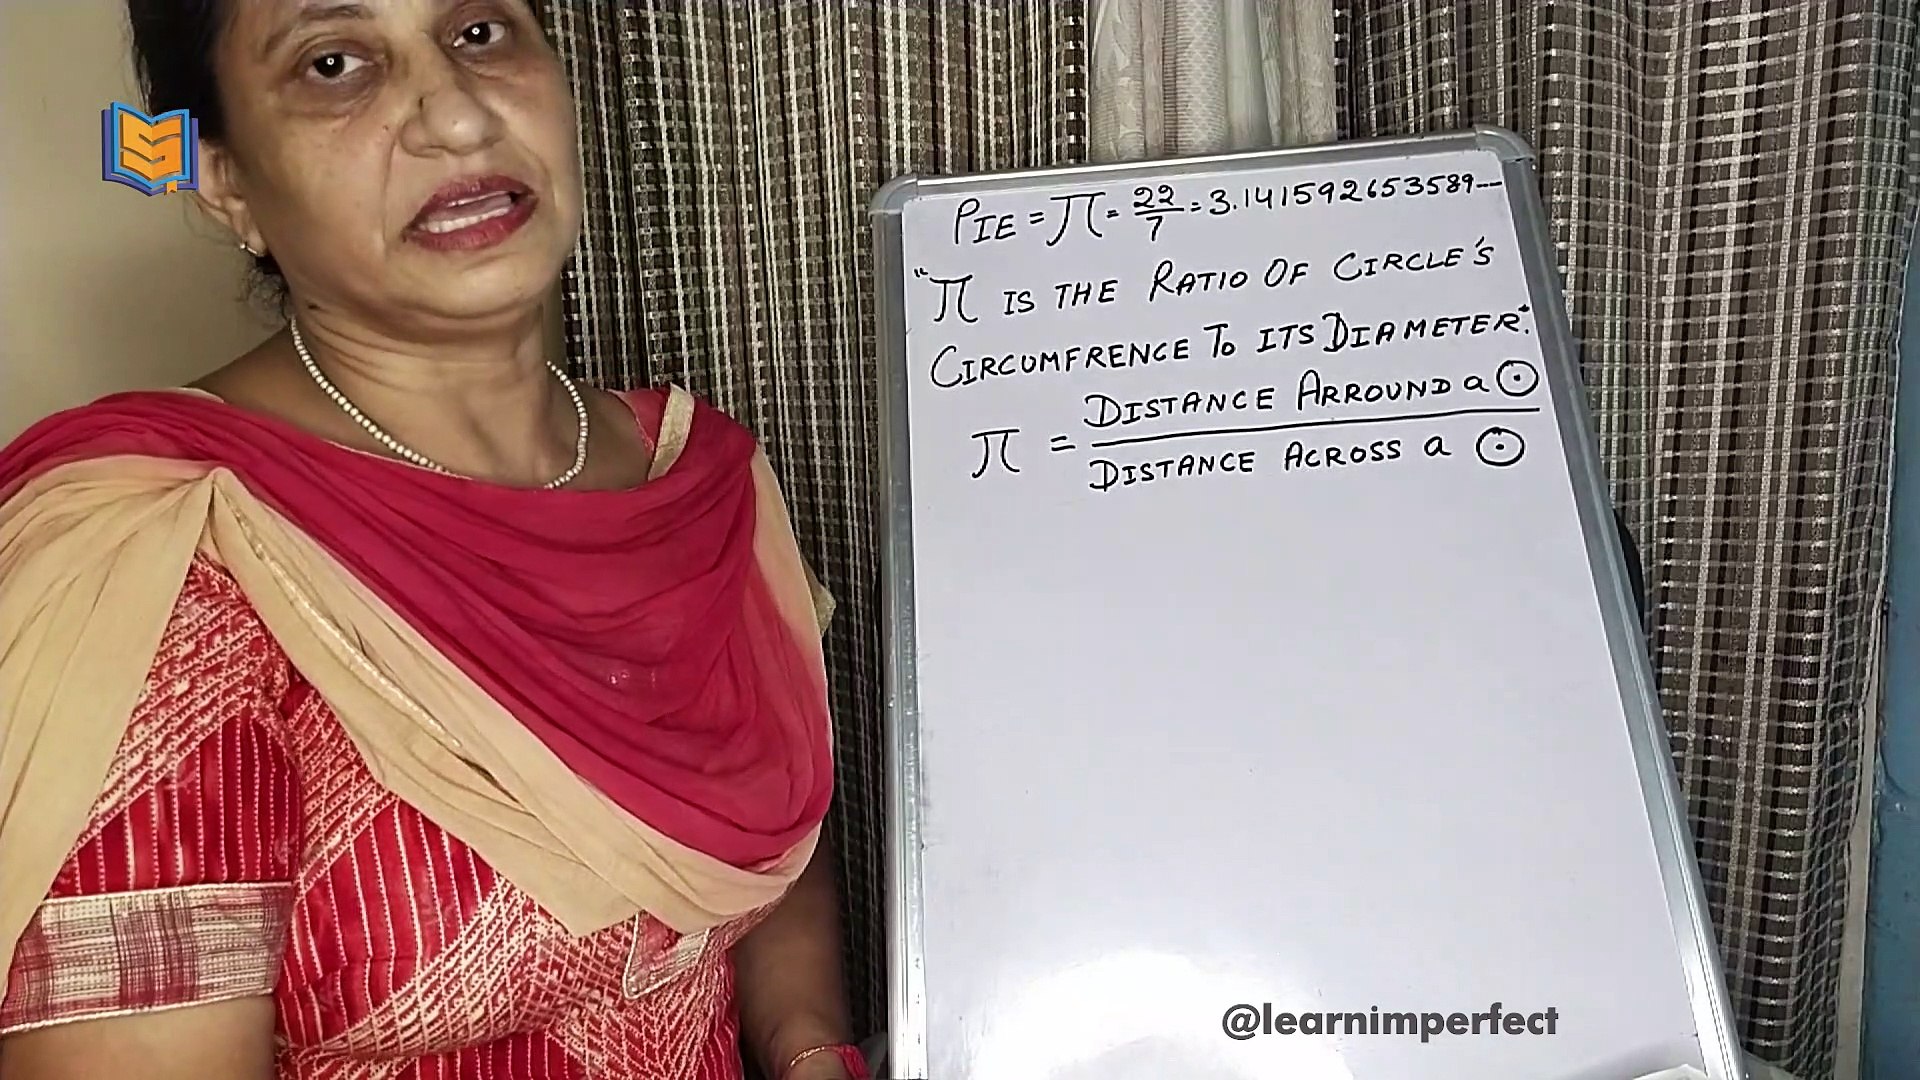 PIE = π = 22/7 = 3.141592653589---
"π IS THE RATIO OF CIRCLE'S
CIRCUMFRENCE TO ITS DIAMETER".
π = DISTANCE ARROUND a ⊙ / DISTANCE ACROSS a ⊙
@learnimperfect
S